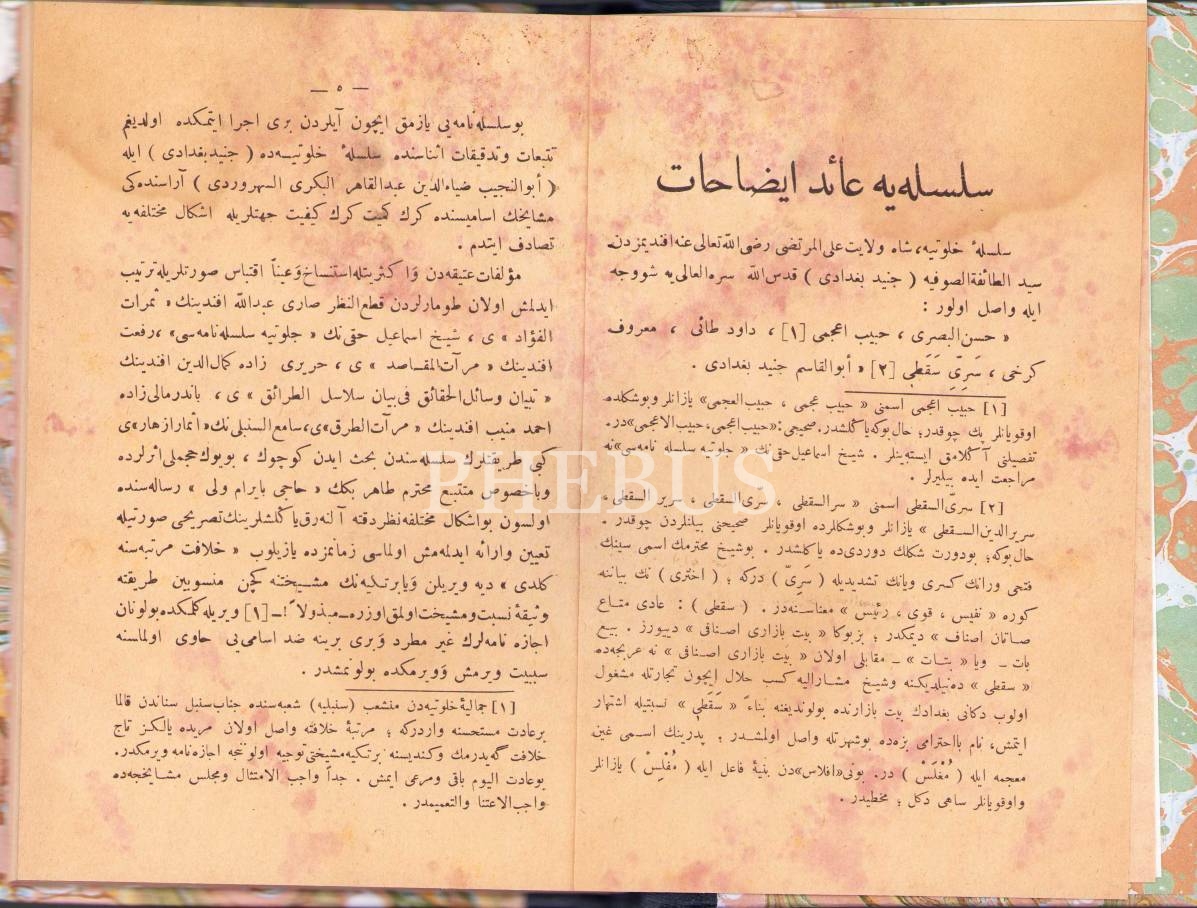 سلسله‌یه عائد ایضاحات
سلسلهٔ خلوتیه، شاه ولایت علی المرتضی رضی الله تعالی عنه افندیمزدن
سید الطائفة الصوفیه ( جنید بغدادی ) قدس الله سره العالی یه شووجه
ایله واصل اولور :
« حسن البصری ، حبیب اعجمی [١] ، داود طائی ، معروف
کرخی ، سَرِیِّ سَقَطی [٢] « أبوالقاسم جنید بغدادی .
[١] حبیب اعجمی اسمنی « حبیب عجمی ، حبیب العجمی» یازانلر وبوشکلده
اوقویانلر پك چوقدر؛ حال بوکه یاکلشدر. صحیحی: «حبیب اعجمی، حبیب الاعجمی»در.
تفصیلنی آکلامق ایسته‌ینلر . شیخ اسماعیل حقی نك « جلوتیه سلسله نامه‌سی» نه
مراجعت ایده بیلیرلر .
[٢] سریّ السقطی اسمنی « سر السقطی ، سرّی السقطی ، سریر السقطی ،
سریرالدین السقطی » یازانلر وبوشکلرده اوقویانلر صحیحنی بیلنلردن چوقدر .
حال بوکه؛ بودورت شکلك دوردی‌ده یاکلشدر . بوشیخ محترمك اسمی سینك
فتحی ورانك کسری ویانك تشدیدیله ( سَرِیّ ) درکه ؛ ( اختری ) نك بیاننه
کوره « نفیس ، قوی ، رئیس » معناسنه‌در . ( سقطی ) : عادی متاع
صاتان اصناف » دیمکدر ؛ بزبوکا « بیت بازاری اصنافی » دیبورز . بیع
بات ـ ویا « بتات » ـ مقابلی اولان « بیت بازاری اصنافی » نه عربجه‌ده
« سقطی » ده‌نیلدیکنه وشیخ مشارالیه کسب حلال ایچون تجارتله مشغول
اولوب دکانی بغدادك بیت بازارنده بولوندیغنه بناءً « سَقَطی » نسبتیله اشتهار
ایتمش، نام بااحترامی بزه‌ده بوشهرتله واصل اولمشدر . پدرینك اسمی غین
معجمه ایله ( مُغْلَسْ ) در. بونی «افلاس»دن بنیهٔ فاعل ایله ( مُفْلِسْ ) یازانلر
واوقویانلر ساهی دکل ؛ مخطیدر .
— ٥ —
بوسلسله‌نامه‌یی یازمق ایچون آیلردن بری اجرا ایتمکده اولدیغم
تتبعات وتدقیقات اثناسنده سلسلهٔ خلوتیه‌ده ( جنید بغدادی ) ایله
( أبوالنجیب ضیاء الدین عبدالقاهر البکری السهروردی ) آراسنده‌کی
مشایخك اسامیسنده کرك کمیت کرك کیفیت جهتلریله اشکال مختلفه‌یه
تصادف ایتدم .
مؤلفات عتیقه‌دن وَا کثریتله استنساخ وَعیناً اقتباس صورتلریله ترتیب
ایدلمش اولان طومارلردن قطع النظر صاری عبدالله افندینك « ثمرات
الفؤاد » ی ، شیخ اسماعیل حقی نك « جلوتیه سلسله‌نامه‌سی» ، رفعت
افندینك « مرآت المقاصد » ی ، حریری زاده کمال الدین افندینك
« تبیان وسائل الحقائق فی بیان سلاسل الطرائق » ی ، باندرمالی زاده
احمد منیب افندینك « مرآت الطرق»ی، سامع السنبلی نك «اثمار ازهار»ی
کبی طریقتلرك سلسله‌سندن بحث ایدن کوچوك ، بویوك حجملی اثرلرده
وباخصوص متتبع محترم طاهر بكك « حاجی بایرام ولی » رساله‌سنده
اولسون بواشکال مختلفه نظردقته آلنه‌رق یاکلشلرینك تصریحی صورتیله
تعیین وارائه ایدلمه‌مش اولماسی زمانمزده یازیلوب « خلافت مرتبه‌سنه
کلدی » دیه ویریلن وَیا برتکیه‌نك مشیختنه کچن منسوبین طریقته
وثیقهٔ نسبت ومشیخت اولمق اوزره ـ مبذولاً ! ـ [١] ویریله‌کلمکده بولونان
اجازه نامه‌لرك غیر مطرد وَبری برینه ضد اسامی‌یی حاوی اولماسنه
سببیت ویرمش وَویرمکده بولونمشدر .
[١] جمالیهٔ خلوتیه‌دن منشعب (سنبلیه) شعبه‌سنده جناب سنبل سناندن قالما
برعادت مستحسنه واردرکه ؛ مرتبهٔ خلافته واصل اولان مریده یالکز تاج
خلافت گه‌یدرمك وکندیسنه برتکیه مشیختی توجیه اولوننجه اجازه‌نامه ویرمکدر.
بوعادت الیوم باقی ومرعی ایمش . جداً واجب الامتثال ومجلس مشایخجه‌ده
واجب الاعتنا والتعمیمدر .
PHEBUS